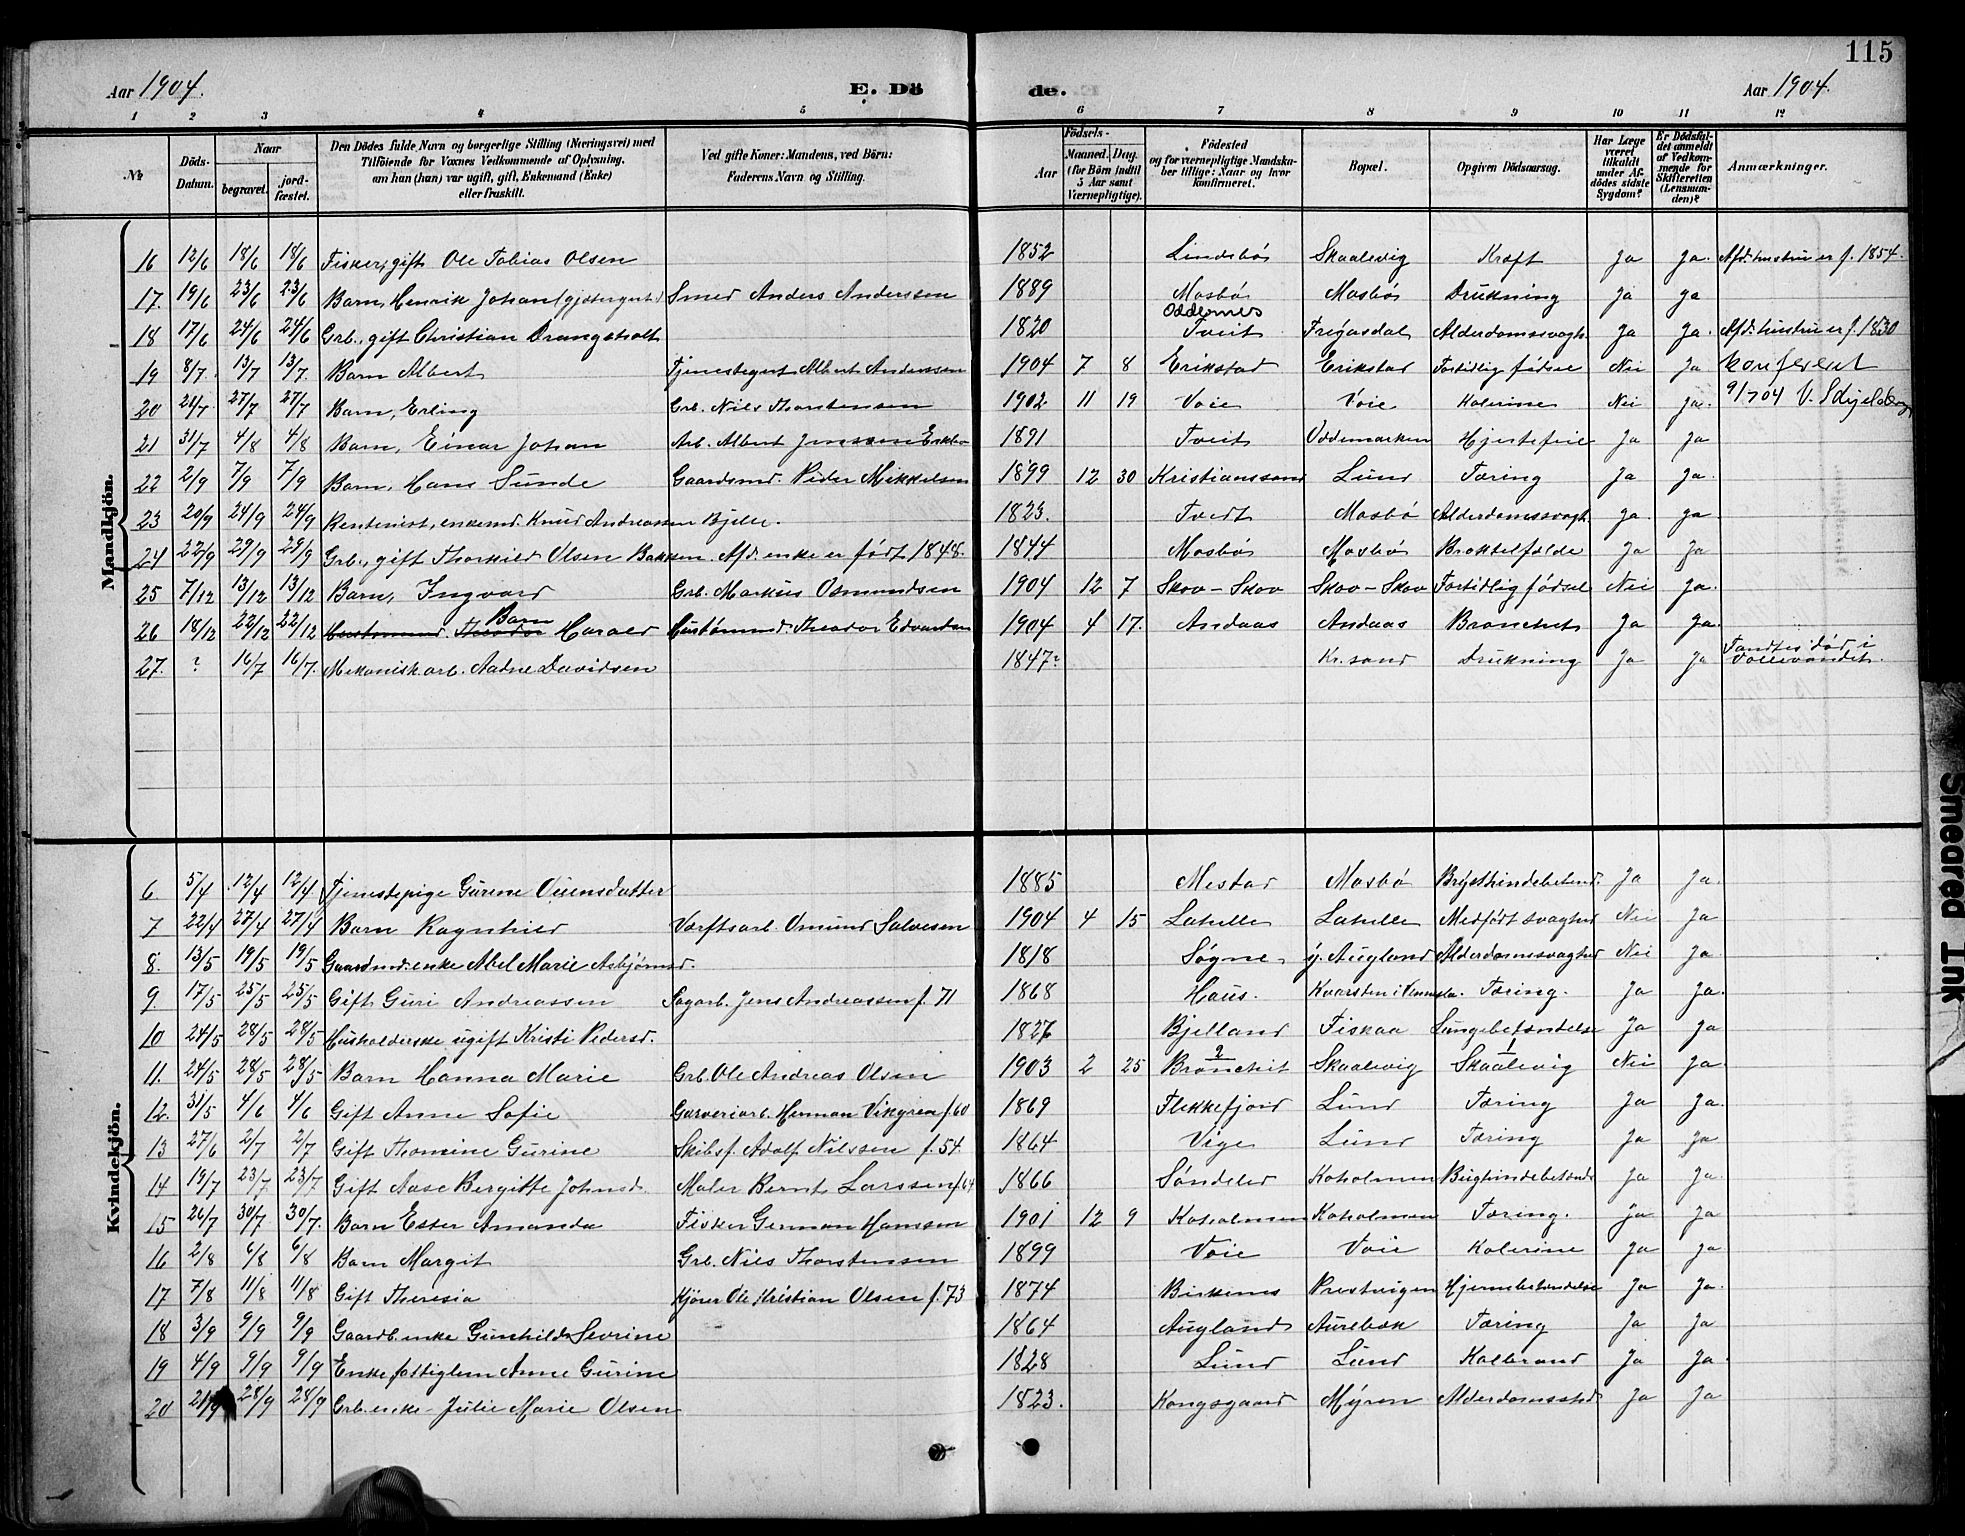 115
Aar 1904. E. Dö de. Aar 1904.
1 2 3 4 5 6 7 8 9 10 11 12
№ Döds-Datum. Naar begravet. jordfæstet. Den Dödes fulde Navn og borgerlige Stilling (Næringsvei) med Tilföiende for Voxnes Vedkommende af Oplysning, om han (hun) var ugift, gift, Enkemand (Enke) eller fraskilt. Ved gifte Koner: Mandens, ved Börn: Faderens Navn og Stilling. Födsels- Aar Maaned. Dag. (for Börn indtil 5 Aar samt Værnepligtige). Födested og for værnepligtige Mandskaber tillige: Naar og hvor konfirmeret. Bopæl. Opgiven Dödsaarsag. Har Læge været tilkaldt under Afdödes sidste Sygdom? Er Dödsfaldet anmeldt af Vedkommende for Skifteretten (Lensmanden)? Anmærkninger.
Mandkjön.
16 12/6 18/6 18/6 Fisker, gift Ole Tobias Olsen 1852 Lindebø Skaalevig Kræft Ja Ja. Afd. hustru er f. 1854.
17. 19/6 23/6 23/6 Barn, Henrik Johan (gjætergut) Smed Anders Anderssen 1889 Mosbø Mosbø Drukning Ja Ja
18 17/6 24/6 24/6 Grb., gift Christian Drangsholt 1820 Oddernes Tveit Fregasdal Alderdomssvagh. Ja Ja. Afd. hustru er f. 1830
19 8/7. 13/7 13/7 Barn Albert Tjenestegut Albert Anderssen 1904 7 8 Erikstad Erikstad Fortidlig fødsel Nei Ja Konfereret
20 21/7 27/7 27/7 Barn, Erling Grb. Nils Thorstensen 1902 11 19 Voie Voie Kolerine Nei Ja. 9/1 04 V.
21 31/7 4/8 4/8 Barn, Einar Johan Arb. Albert Jenssen 1891 Tveit Uddemarken Hjertefeil Ja Ja
22 2/9 7/9 7/9 Barn, Hans Sunde Gaardmd. Peder Mikkelsen 1899 12 30 Kristianssand Lund Tæring Ja Ja.
23 20/9 24/9 24/9 Rentenist, enkemd. Knud Andreassen Bjelle. 1823. Tvedt Mosbø Alderdomssvagh. Ja. Ja.
24 22/9 29/9 29/9 Grb., gift Thorkild Olsen Bakken. Afd. enke er født 1848. 1844 Mosbø Mosbø Ja Ja
25 7/12 13/12 13/12 Barn, Ingvard Grb. Markus Osmundsen 1904 12 7 Skov-Skov Skov-Skov Fortidlig fødsel Nei Ja.
26 18/12 22/12 22/12 Barn Harald Theodor Edvardsen 1904 4 17. Andaas Andaas Bronchit Ja Ja.
27. ? 16/7 16/7. Mekanisk arb. Aadne Davidsen 1847? Kr.sand Drukning Ja Ja Fandtes død i Vollevandet.
Kvindekjön.
6. 5/4 12/4 12/4 Tjenestepige Gurine 1885 Mestad Mosbø Ja Ja.
7 22/4 27/4 27/4 Barn Ragnhild Værftsarb. Omund Salvesen 1904 4 15 Lahelle Lahelle Medfødt svaghed Nei Ja
8. 13/5 19/5 19/5 Gaardmd.enke Abel Marie Asbjørnsd. 1818 Søgne y. Augland Alderdomssvaghed Nei Ja
9 17/5 25/5 25/5 Gift Guri Andreassen Sagarb. Jens Andreassen f. 71 1868 Haus. Kvarsten i Vennesla. Tæring. Ja Ja.
10 24/5 28/5 28/5 Husholderske ugift Kristi Pedersd. 1827 Bjelland Fiskaa Lungebetændelse Ja Ja
11. 24/5 28/5 28/5 Barn Hanna Marie Grb. Ole Andreas Olsen 1903 2 25 2 Bronchit Skaalevig 1 Skaalevig Nei Ja.
12. 31/5 4/6 4/6 Gift Anne Sofie Garveriarb. Herman Vikgren f. 60 1869 Flekkefjord Lund Tæring Ja Ja.
13 27/6 2/7 2/7 Gift Thomine Gurine Skibsf. Adolf Nilssen f. 54 1864 Vige Lund Tæring Ja Ja
14 19/7 23/7 23/7 Gift Aase Bergitte Johnsd. Maler Bernt Larssen f. 64 1866 Søndeled Koholmen Ja Ja
15 26/7 30/7 30/7. Barn Ester Amanda Fisker German Hanssen 1901 12 9 Koholmen Koholmen Tæring. Ja Ja
16 2/8 6/8 6/8 Barn Margit Grb. Nils Thorstensen 1899 Voie Voie Kolerine Ja Ja
17 7/8 11/8 11/8 Gift Theresia Kjører Ole Kristian Olsen f. 73 1874 Birkenes Prestvigen Hjernebetændelse Ja Ja.
18 3/9 9/9 9/9 Gaardb. enke Gunhild Sevrine 1864 Augland Aurebæk Tæring Ja Ja
19 4/9 9/9 9/9 Enke fattiglem Anne Gurine 1828 Lund Lund Kolbrand Ja Ja.
20 21/9 28/9 28/9 Grb. enke Julie Marie Olsen 1823. Kongsgaard Myren Ja Ja
Smeared Ink